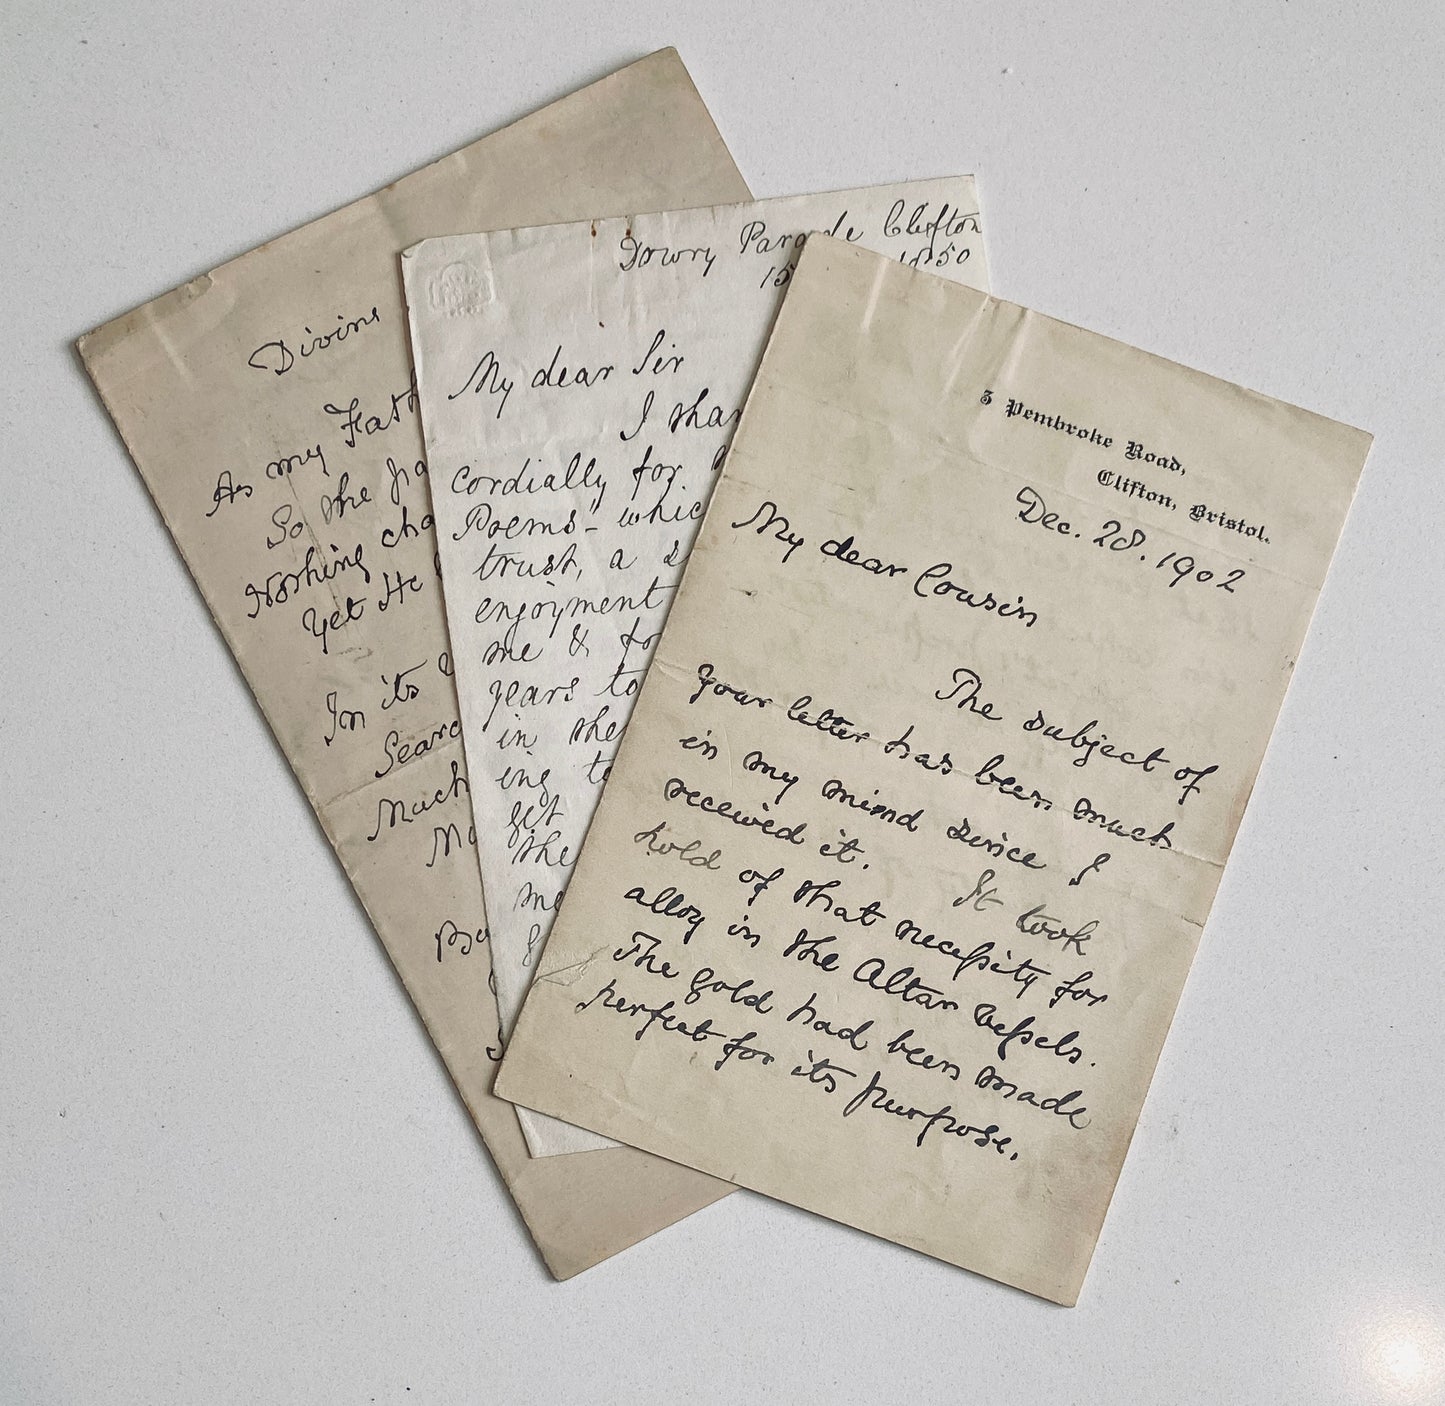 Divine
As my Fath
So the pa
Nothing cha
Yet He
In its
Searc
Much
My
Ba
Dowry Parade Clifton
15 1850
My dear Sir
I shar
cordially for
Poems" which
trust, a s
enjoyment
me & for
years to
in the
ing to
get
the
me
3 Pembroke Road,
Clifton, Bristol.
Dec. 28. 1902
My dear Cousin
The subject of
your letter has been much
in my mind since I
received it. It took
hold of that necessity for
alloy in the Altar vessels.
The gold had been made
perfect for its purpose.